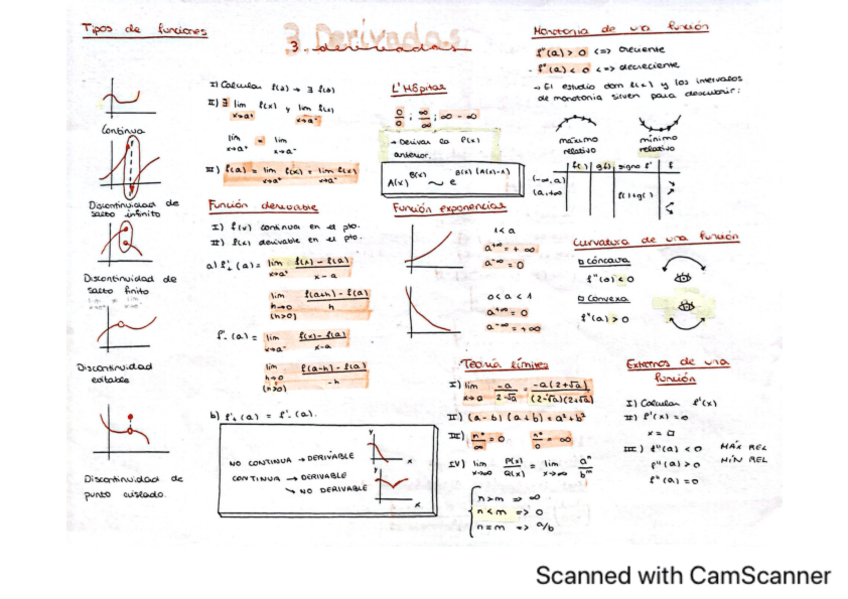 3. Derivadas
3. derivadas
Tipos de funciones
Continua
Discontinuidad de
salto infinito
Discontinuidad de
salto finito
Discontinuidad
evitable
Discontinuidad de
punto aislado.
I) Calcular f(a) → ∃ f(a)
II) ∃ lim f(x) y lim f(x)
x→a⁺ x→a⁻
lim = lim
x→a⁺ x→a⁻
III) f(a) = lim f(x) = lim f(x)
x→a⁺ x→a⁻
Función derivable
I) f(x) continua en el pto.
II) f(x) derivable en el pto.
a) f'₊(a) = lim f(x) - f(a)
x→a⁺ x - a
lim f(a+h) - f(a)
h→0 h
(h>0)
f'₋(a) = lim f(x) - f(a)
x→a⁻ x-a
lim f(a-h) - f(a)
h→0 -h
(h>0)
b) f'₊(a) = f'₋(a).
NO CONTINUA → DERIVABLE
CONTINUA → DERIVABLE
↘ NO DERIVABLE
y
x
y
x
L'Hôpital
0/0 ; ∞/∞ ; ∞ - ∞
→ Derivar la f(x)
anterior.
A(x)^B(x) ~ e^B(x)(A(x)-1)
Función exponencial
1 < a
a⁺∞ = +∞
a⁻∞ = 0
0 < a < 1
a⁺∞ = 0
a⁻∞ = +∞
Teoría límites
I) lim -a = -a(2+√a)
x→0 2-√a (2-√a)(2+√a)
II) (a-b)(a+b) = a²+b²
III) n°/∞ = 0 n°/0 = ∞
IV) lim P(x) = lim aⁿ
x→∞ Q(x) x→∞ bᵐ
n > m => ∞
n < m => 0
n = m => a/b
Monotonía de una función
f'(a) > 0 <=> creciente
- f'(a) < 0 <=> decreciente
→ El estudio dom f(x) y los intervalos
de monotonía sirven para descubrir:
máximo
relativo
mínimo
relativo
f(·) g(·) signo f' f
(-∞, a)
(a, +∞ f(·)+g(·)
Curvatura de una función
cóncava
f''(a) < 0
convexa
f''(a) > 0
Extremos de una
función
I) Calcular f'(x)
II) f'(x) = 0
x = □
III) f''(a) < 0 MÁX REL
f''(a) > 0 MÍN REL
f''(a) = 0
Scanned with CamScanner